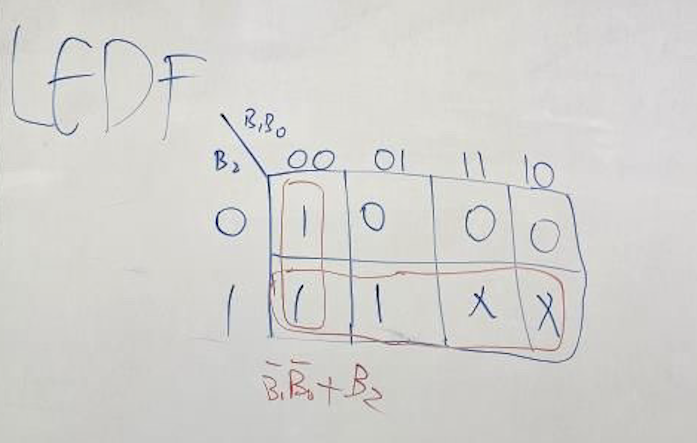 LEDF
B₁B₀
B₂ 00 01 11 10
0 1 0 0 0
1 1 1 X X
B̅₁B̅₀ + B₂